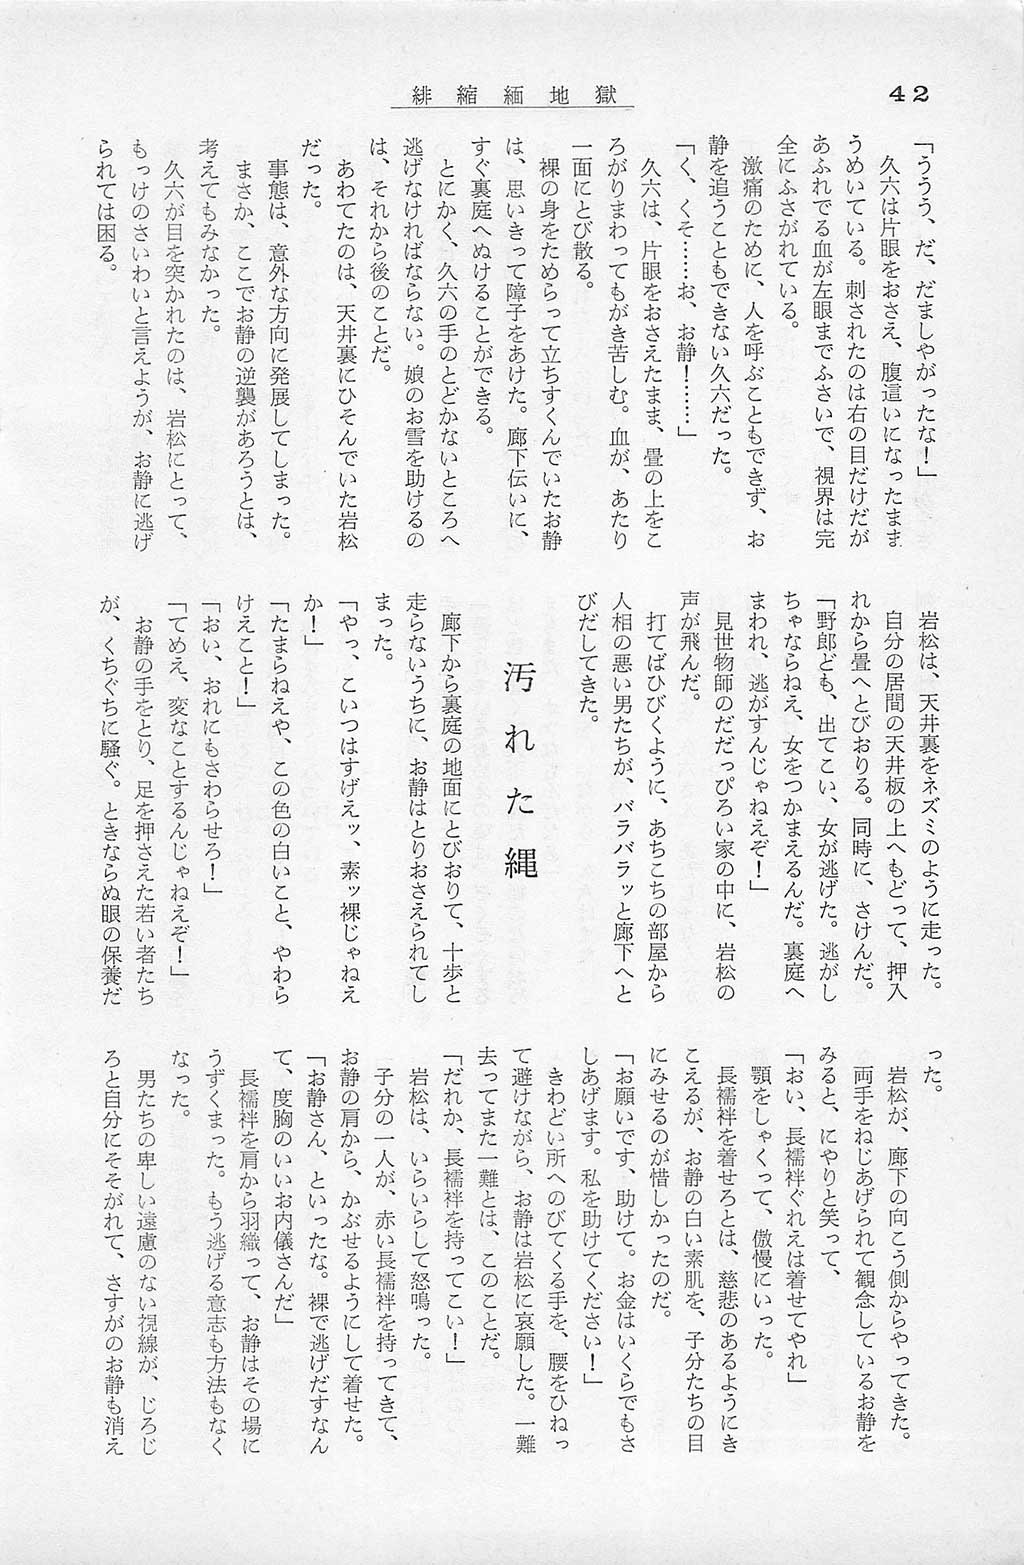 緋縮緬地獄
42
「ううう、だ、だましやがったな！」
　久六は片眼をおさえ、腹這いになったまま
うめいている。刺されたのは右の目だけだが
あふれでる血が左眼までふさいで、視界は完
全にふさがれている。
　激痛のために、人を呼ぶこともできず、お
静を追うこともできない久六だった。
「く、くそ……お、お静！……」
　久六は、片眼をおさえたまま、畳の上をこ
ろがりまわってもがき苦しむ。血が、あたり
一面にとび散る。
　裸の身をためらって立ちすくんでいたお静
は、思いきって障子をあけた。廊下伝いに、
すぐ裏庭へぬけることができる。
　とにかく、久六の手のとどかないところへ
逃げなければならない。娘のお雪を助けるの
は、それから後のことだ。
　あわてたのは、天井裏にひそんでいた岩松
だった。
　事態は、意外な方向に発展してしまった。
　まさか、ここでお静の逆襲があろうとは、
考えてもみなかった。
　久六が目を突かれたのは、岩松にとって、
もっけのさいわいと言えようが、お静に逃げ
られては困る。
　岩松は、天井裏をネズミのように走った。
　自分の居間の天井板の上へもどって、押入
れから畳へとびおりる。同時に、さけんだ。
「野郎ども、出てこい、女が逃げた。逃がし
ちゃならねえ、女をつかまえるんだ。裏庭へ
まわれ、逃がすんじゃねえぞ！」
　見世物師のだだっぴろい家の中に、岩松の
声が飛んだ。
　打てばひびくように、あちこちの部屋から
人相の悪い男たちが、バラバラッと廊下へと
びだしてきた。
汚れた縄
　廊下から裏庭の地面にとびおりて、十歩と
走らないうちに、お静はとりおさえられてし
まった。
「やっ、こいつはすげえッ、素ッ裸じゃねえ
か！」
「たまらねえや、この色の白いこと、やわら
けえこと！」
「おい、おれにもさわらせろ！」
「てめえ、変なことするんじゃねえぞ！」
　お静の手をとり、足を押さえた若い者たち
が、くちぐちに騒ぐ。ときならぬ眼の保養だ
った。
　岩松が、廊下の向こう側からやってきた。
　両手をねじあげられて観念しているお静を
みると、にやりと笑って、
「おい、長襦袢ぐれえは着せてやれ」
　顎をしゃくって、傲慢にいった。
　長襦袢を着せろとは、慈悲のあるようにき
こえるが、お静の白い素肌を、子分たちの目
にみせるのが惜しかったのだ。
「お願いです、助けて。お金はいくらでもさ
しあげます。私を助けてください！」
　きわどい所へのびてくる手を、腰をひねっ
て避けながら、お静は岩松に哀願した。一難
去ってまた一難とは、このことだ。
「だれか、長襦袢を持ってこい！」
　岩松は、いらいらして怒鳴った。
　子分の一人が、赤い長襦袢を持ってきて、
お静の肩から、かぶせるようにして着せた。
「お静さん、といったな。裸で逃げだすなん
て、度胸のいいお内儀さんだ」
　長襦袢を肩から羽織って、お静はその場に
うずくまった。もう逃げる意志も方法もなく
なった。
　男たちの卑しい遠慮のない視線が、じろじ
ろと自分にそそがれて、さすがのお静も消え